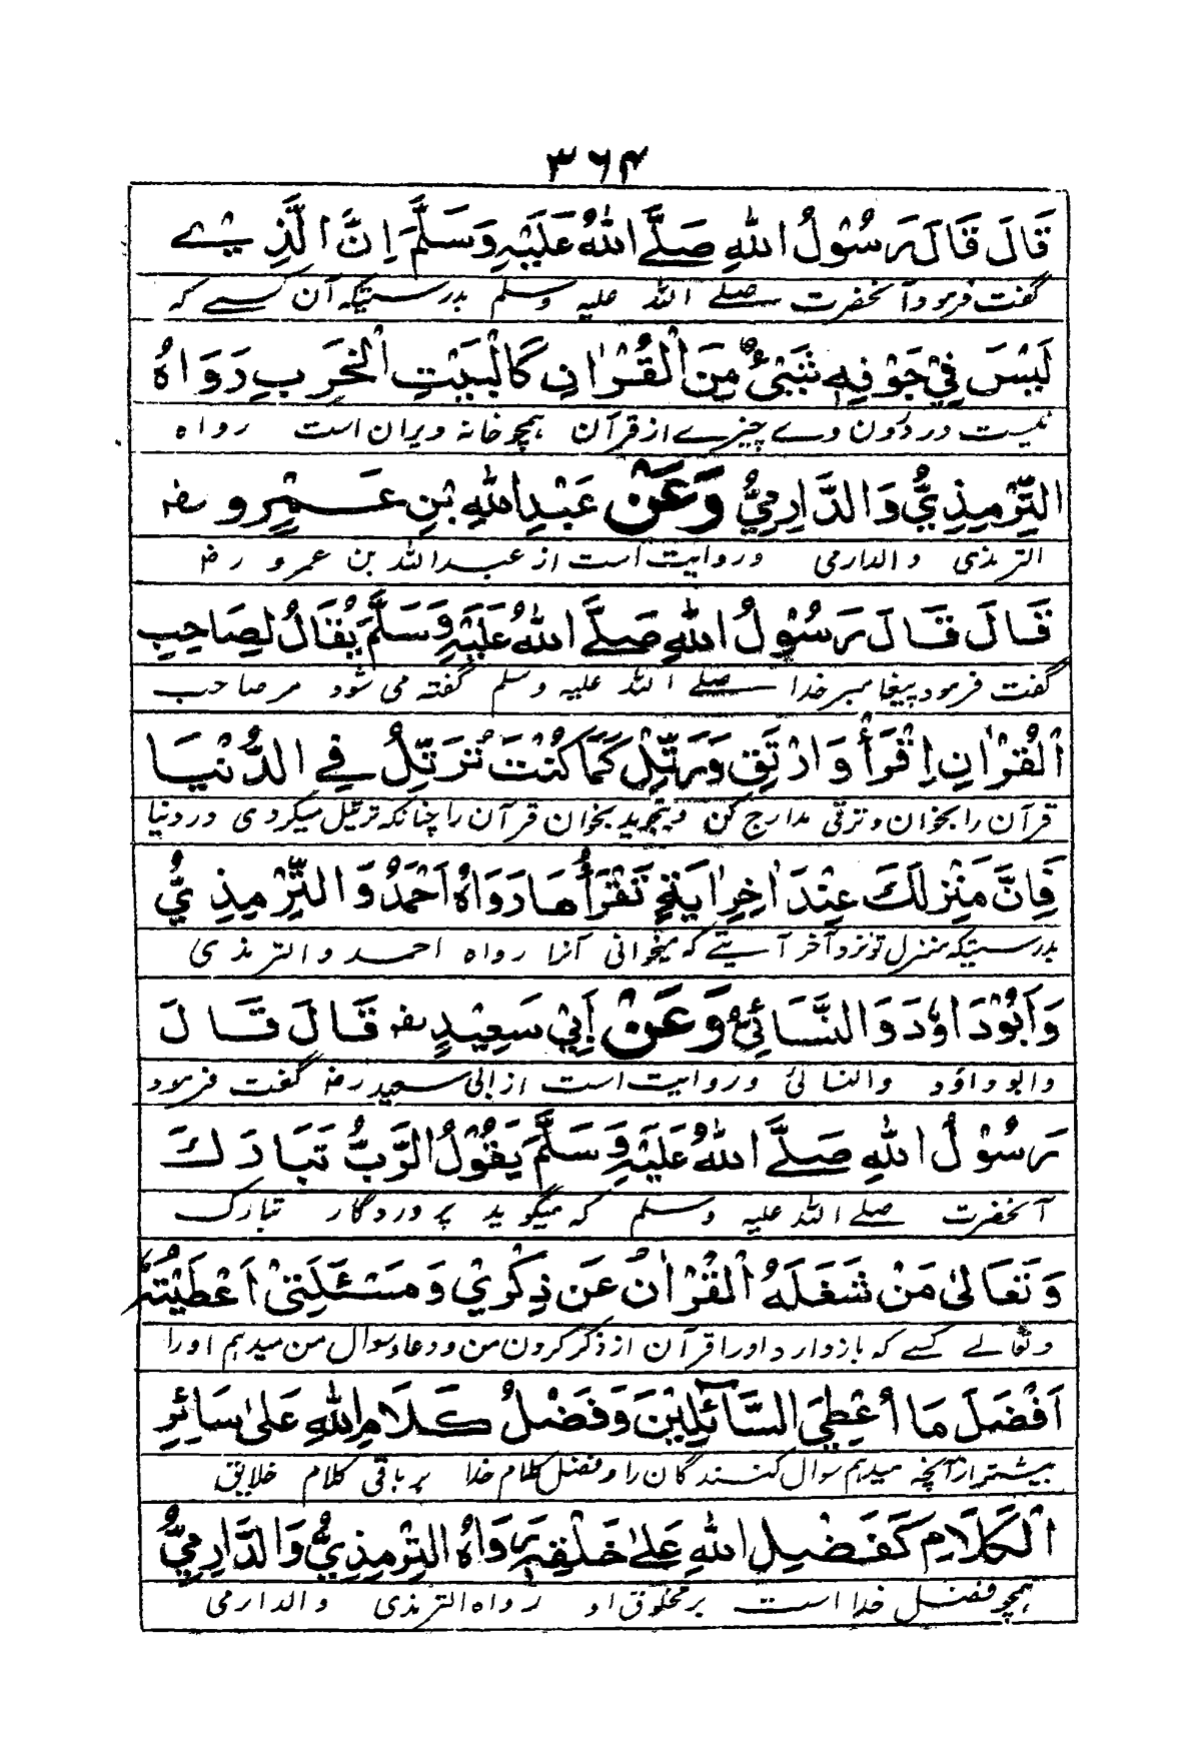 ۳۶۴
قَالَ قَالَ رَسُوْلُ اللهِ صَلَّے اللهُ عَلَيْهِ وَسَلَّمَ اِنَّ الَّذِيْ
گفت فرمود آنحضرت صلے اللہ علیہ وسلم بدرستیکہ آن کسے کہ
لَيْسَ فِيْ جَوْفِهٖ شَيْئٌ مِنَ الْقُرْاٰنِ كَالْبَيْتِ الْخَرِبِ رَوَاهُ
نیست در درون وے چیزے از قرآن ہمچو خانہ ویران است رواہ
التِّرْمِذِيُّ وَالدَّارِمِيُّ وَعَنْ عَبْدِ اللهِ بْنِ عَمْرٍو رض
الترمذی والدارمی و روایت است از عبداللہ بن عمرو رض
قَالَ قَالَ رَسُوْلُ اللهِ صَلَّے اللهُ عَلَيْهِ وَسَلَّمَ يُقَالُ لِصَاحِبِ
گفت فرمود پیغامبر خدا صلے اللہ علیہ وسلم گفتہ می شود مر صاحب
الْقُرْاٰنِ اِقْرَأْ وَارْتَقِ وَرَتِّلْ كَمَا كُنْتَ تُرَتِّلُ فِي الدُّنْيَا
قرآن را بخوان و ترقی مدارج کن و بتجوید بخوان قرآن را چنانکہ ترتیل میکردی در دنیا
فَاِنَّ مَنْزِلَكَ عِنْدَ اٰخِرِ اٰيَةٍ تَقْرَأُهَا رَوَاهُ اَحْمَدُ وَالتِّرْمِذِيُّ
بدرستیکہ منزل تو نزد آخر آیتے کہ میخوانی آنرا رواہ احمد والترمذی
وَاَبُوْدَاوٗدَ وَالنَّسَائِيُّ وَعَنْ أَبِيْ سَعِيْدٍ رض قَالَ قَالَ
وابو داؤد والنسائی و روایت است از ابی سعید رض گفت فرمود
رَسُوْلُ اللهِ صَلَّے اللهُ عَلَيْهِ وَسَلَّمَ يَقُوْلُ الرَّبُّ تَبَارَكَ
آنحضرت صلے اللہ علیہ وسلم کہ میگوید پروردگار تبارک
وَتَعَالٰى مَنْ شَغَلَهُ الْقُرْاٰنُ عَنْ ذِكْرِيْ وَمَسْئَلَتِيْ اَعْطَيْتُهٗ
وتعالے کسے کہ بازدارد اورا قرآن از ذکر کردن من و دعا و سوال من میدہم اورا
اَفْضَلَ مَا اُعْطِيَ السَّآئِلِيْنَ وَفَضْلُ كَلَامِ اللهِ عَلٰى سَائِرِ
بیشتر از آنچہ میدہم سوال کنندگان را و فضل کلام خدا بر باقی کلام خلایق
الْكَلَامِ كَفَضْلِ اللهِ عَلٰى خَلْقِهٖ رَوَاهُ التِّرْمِذِيُّ وَالدَّارِمِيُّ
ہمچو فضل خدا است بر مخلوق او رواہ الترمذی والدارمی